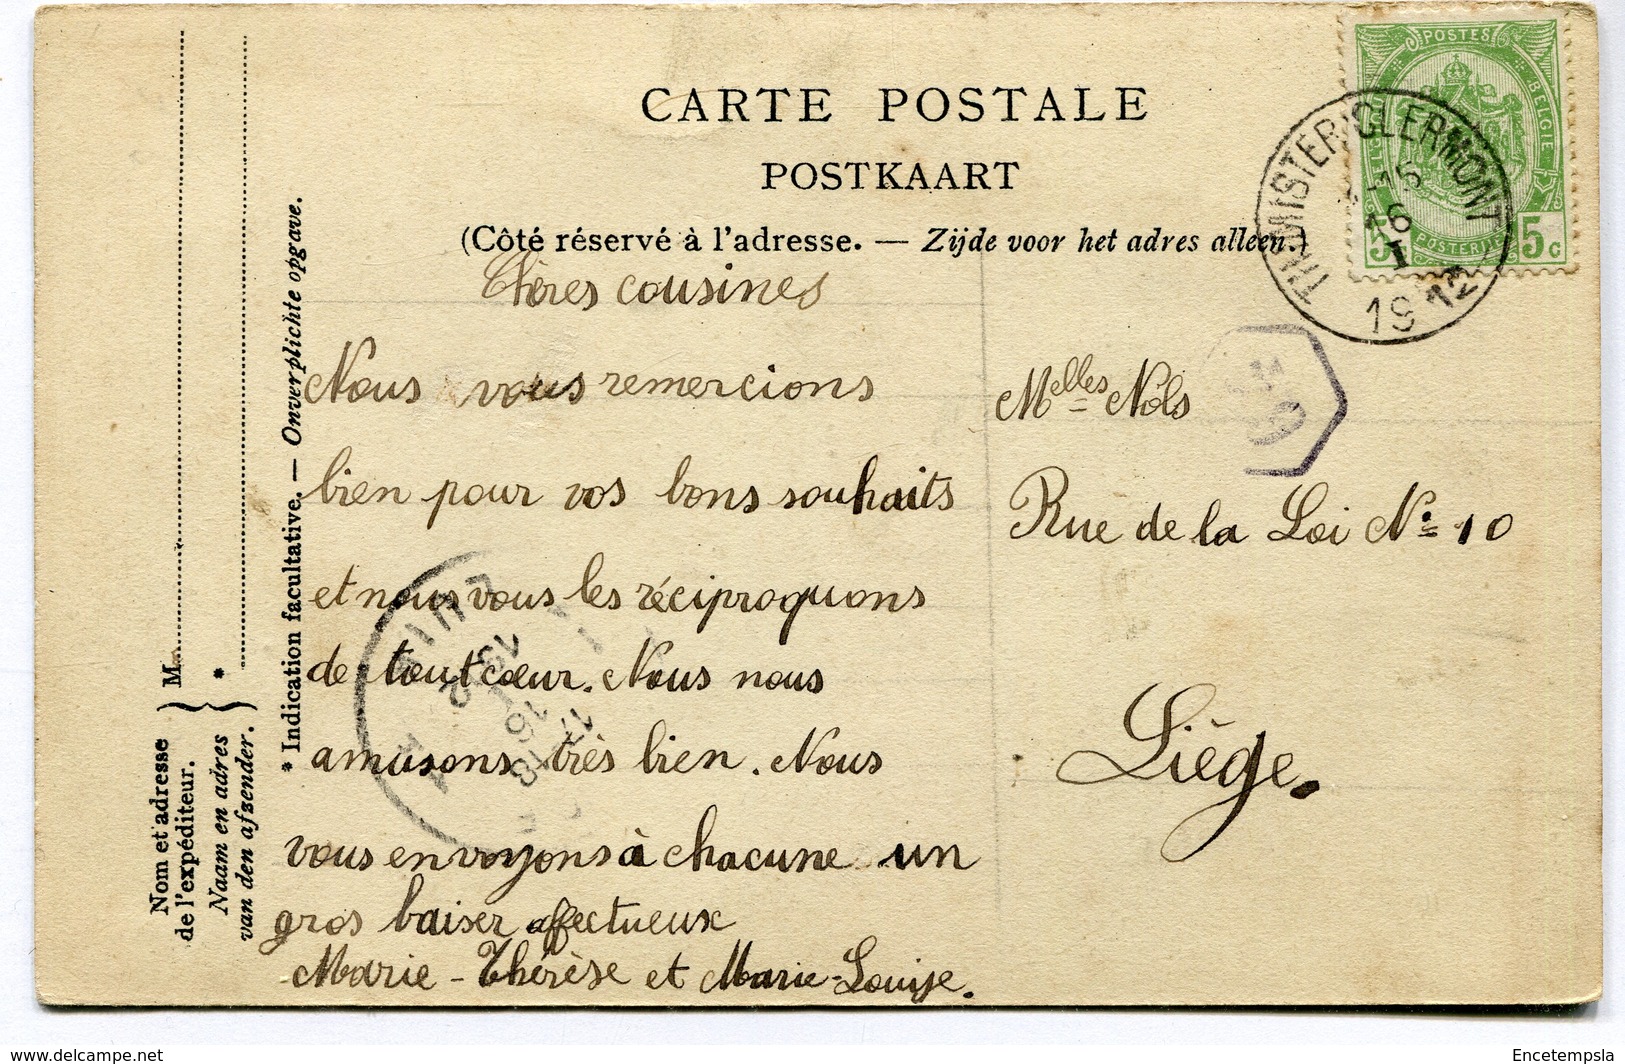 CARTE POSTALE
POSTKAART
(Côté réservé à l'adresse. — Zijde voor het adres alleen.)
POSTES
BELGIE
POSTERIJ
5 5c
THIMISTER (CLERMONT
15
16
I
1912
Chères cousines
Nous vous remercions
bien pour vos bons souhaits
et nous vous les réciproquons
de tout cœur. Nous nous
amusons très bien. Nous
vous envoyons à chacune un
gros baiser affectueux
Marie-Thérèse et Marie-Louise.
Melles Nols
Rue de la Loi No 10
Liège.
* Indication facultative. — Onverplichte opgave.
Nom et adresse
de l'expéditeur.
Naam en adres
van den afzender.
M
*
delcampe.net
Encetempsla